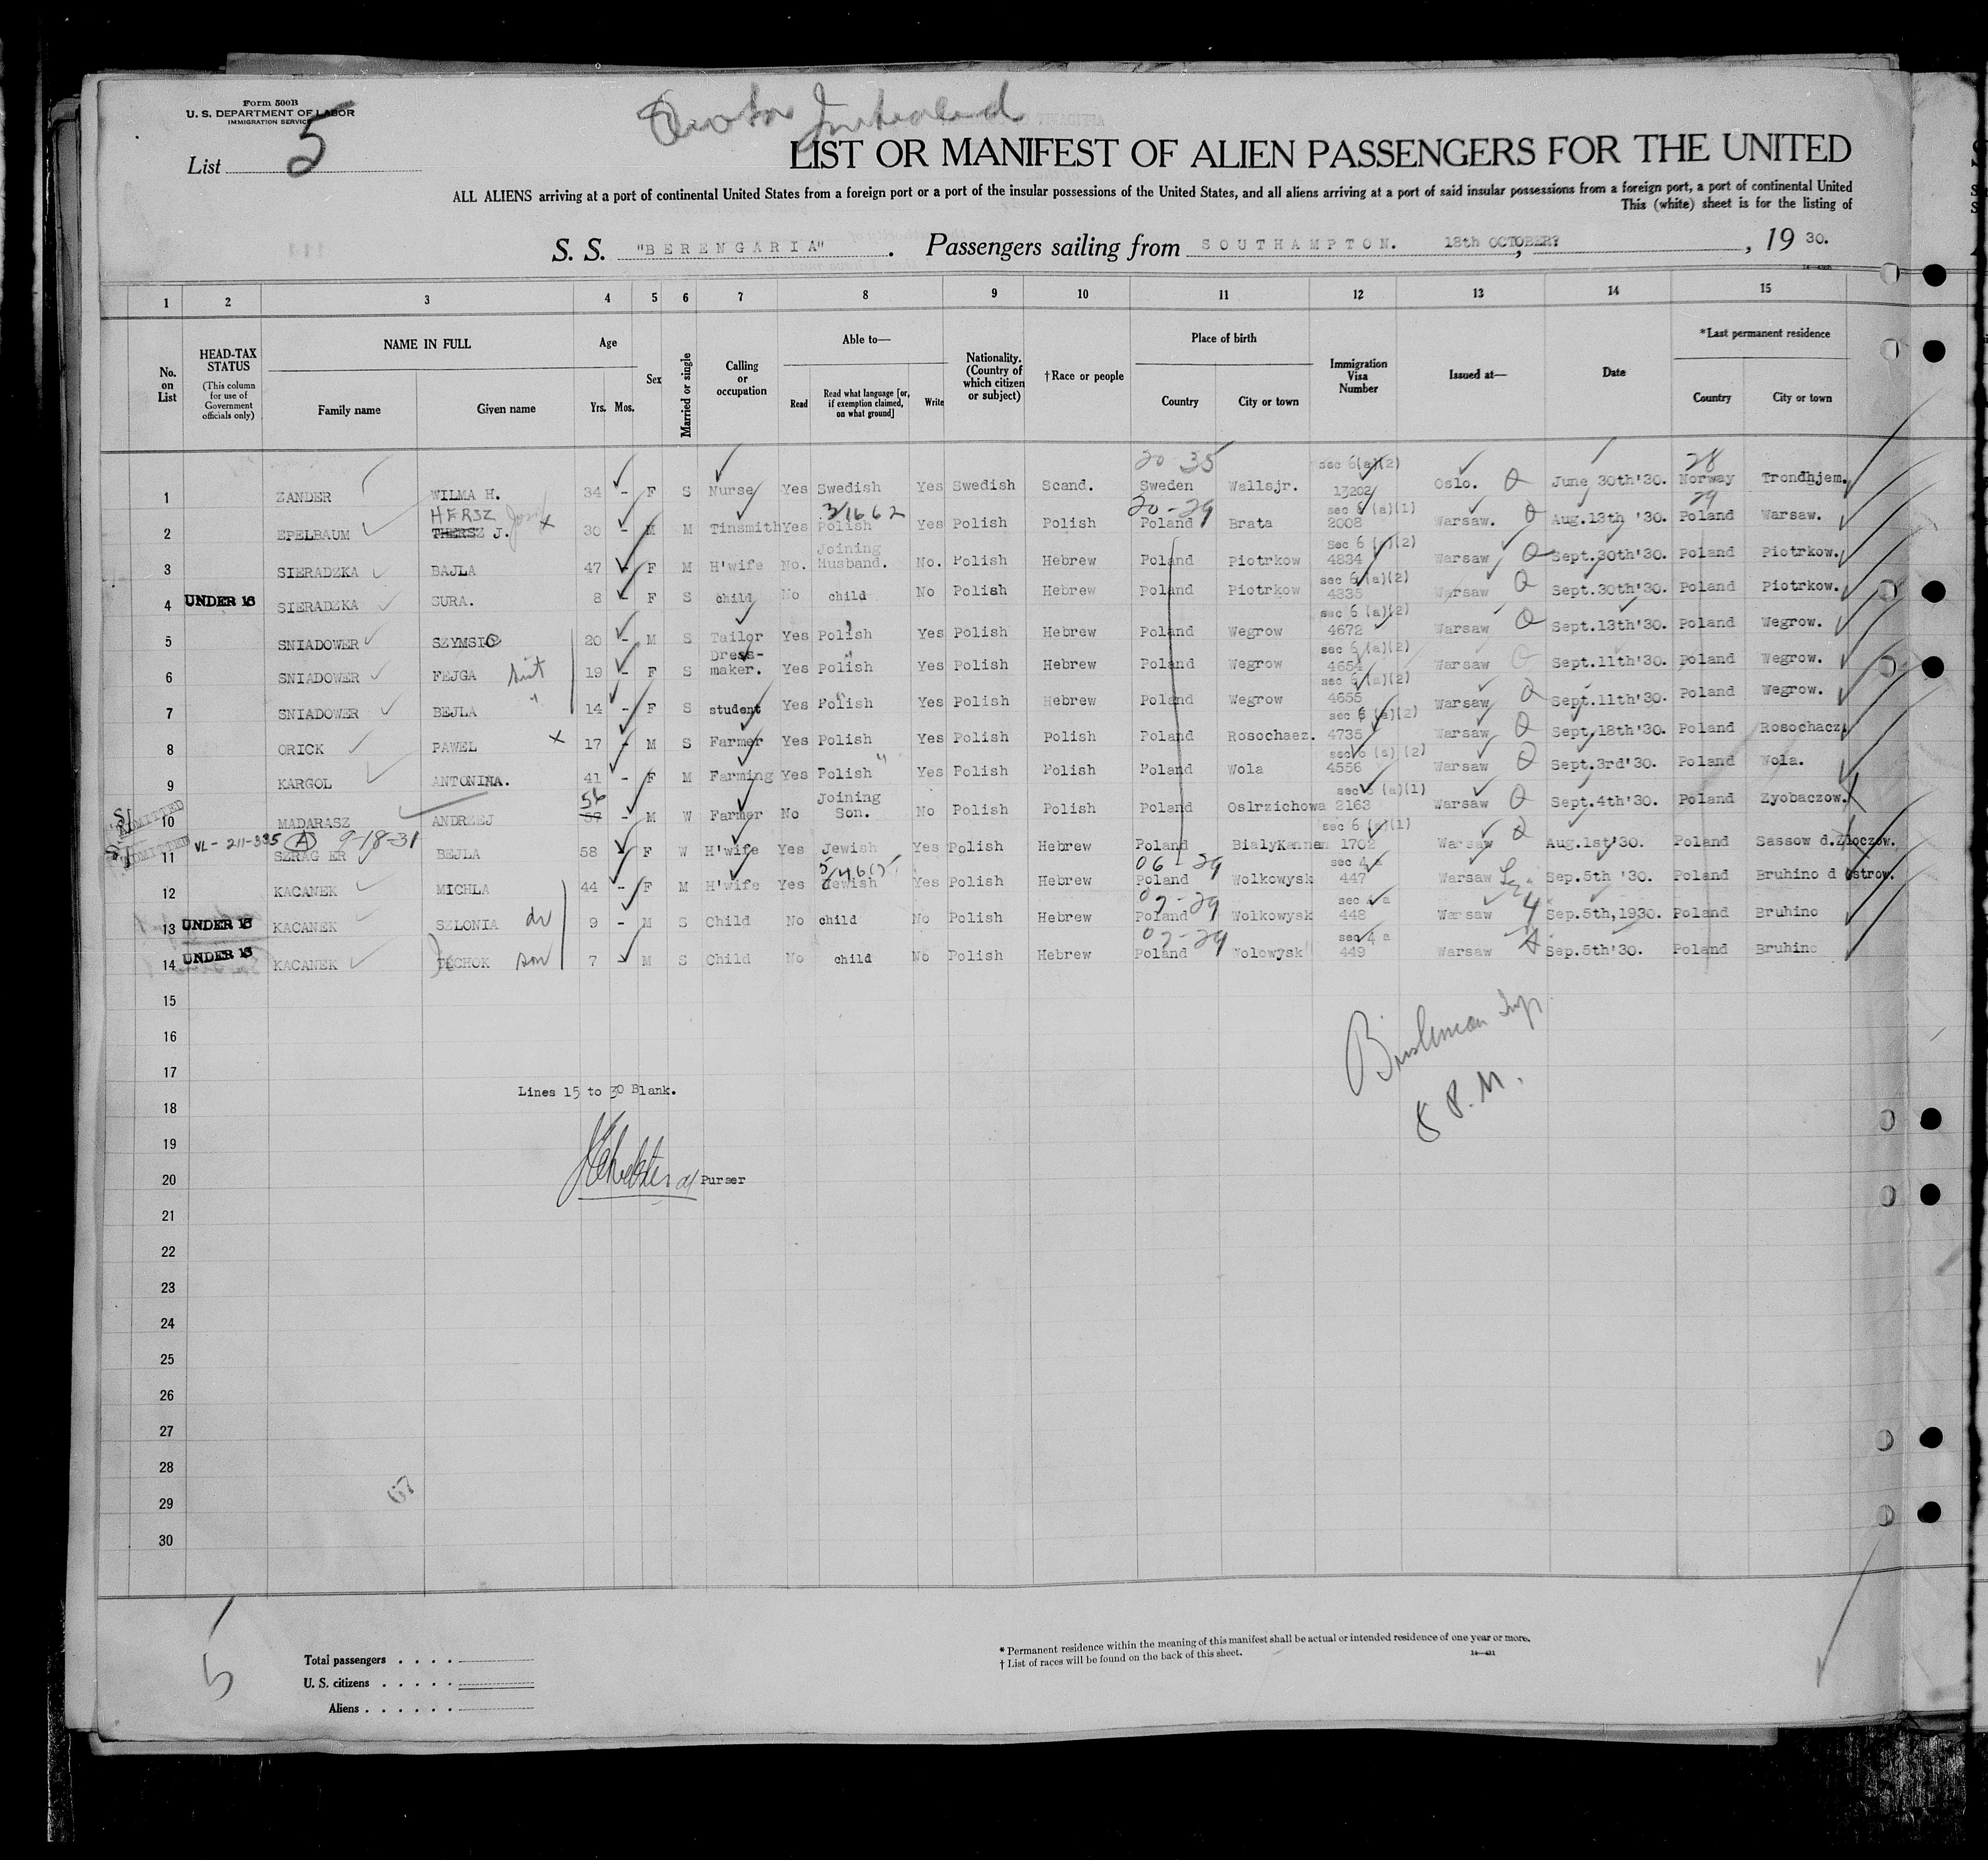 Form 500B
U. S. DEPARTMENT OF LABOR
IMMIGRATION SERVICE
List 5
Quota
LIST OR MANIFEST OF ALIEN PASSENGERS FOR THE UNITED
ALL ALIENS arriving at a port of continental United States from a foreign port or a port of the insular possessions of the United States, and all aliens arriving at a port of said insular possessions from a foreign port, a port of continental United
This (white) sheet is for the listing of
S. S. "BERENGARIA". Passengers sailing from SOUTHAMPTON. 18th OCTOBER, 19 30.
1 2 3 4 5 6 7 8 9 10 11 12 13 14 15
No. on List
HEAD-TAX STATUS (This column for use of Government officials only)
NAME IN FULL
Family name Given name
Age
Yrs. Mos.
Sex
Married or single
Calling or occupation
Able to—
Read Read what language [or, if exemption claimed, on what ground] Write
Nationality. (Country of which citizen or subject)
†Race or people
Place of birth
Country City or town
Immigration Visa Number
Issued at—
Date
*Last permanent residence
Country City or town
20-35 sec 6(a)(2) 28
1 ZANDER WILMA H. 34 - F S Nurse Yes Swedish Yes Swedish Scand. Sweden Wallsjr. 13202 Oslo. June 30th'30. Norway Trondhjem.
HERSZ 31662 20-29 sec 6 (a)(1) 29
2 EPELBAUM THERSZ J. x 30 - M M Tinsmith Yes Polish Yes Polish Polish Poland Brata 2008 Warsaw. Aug.13th '30. Poland Warsaw.
Joining sec 6 (a)(2)
3 SIERADZKA BAJLA 47 - F M H'wife No. Husband. No. Polish Hebrew Poland Piotrkow 4834 Warsaw Sept.30th'30. Poland Piotrkow.
sec 6 (a)(2)
4 UNDER 16 SIERADZKA SURA. 8 - F S child No child No Polish Hebrew Poland Piotrkow 4835 Warsaw Sept.30th'30. Poland Piotrkow.
sec 6 (a)(2)
5 SNIADOWER SZYMSIO 20 - M S Tailor Yes Polish Yes Polish Hebrew Poland Wegrow 4672 Warsaw Sept.13th'30. Poland Wegrow.
Dress- sec 6 (a)(2)
6 SNIADOWER FEJGA sist 19 - F S maker. Yes Polish Yes Polish Hebrew Poland Wegrow 4654 Warsaw Sept.11th'30. Poland Wegrow.
sec 6 (a)(2)
7 SNIADOWER BEJLA " 14 - F S student Yes Polish Yes Polish Hebrew Poland Wegrow 4655 Warsaw Sept.11th'30. Poland Wegrow.
sec 6 (a)(2)
8 ORICK PAWEL x 17 - M S Farmer Yes Polish Yes Polish Polish Poland Rosochaez. 4735 Warsaw Sept.18th'30. Poland Rosochacz.
sec 6 (a)(2)
9 KARGOL ANTONINA. 41 - F M Farming Yes Polish Yes Polish Polish Poland Wola 4556 Warsaw Sept.3rd'30. Poland Wola.
56 Joining sec 6 (a)(1)
ADMITTED 10 MADARASZ ANDRZEJ 57 - M W Farmer No Son. No Polish Polish Poland Oslrzichowa 2163 Warsaw Sept.4th'30. Poland Zyobaczow.
VL-211-335 (A) 9-18-31 sec 6 (a)(1)
ADMITTED 11 SZRAG ER BEJLA 58 - F W H'wife Yes Jewish Yes Polish Hebrew Poland BialyKannen 1702 Warsaw Aug.1st'30. Poland Sassow d.Zloczow.
06-29 sec 4 a
12 KACANEK MICHLA 44 - F M H'wife Yes Jewish Yes Polish Hebrew Poland Wolkowysk 447 Warsaw Sep.5th '30. Poland Bruhino d Ostrow.
07-29 sec 4 a
13 UNDER 16 KACANEK SZLONIA 9 - M S Child No child No Polish Hebrew Poland Wolkowysk 448 Warsaw Sep.5th,1930. Poland Bruhino
07-29 sec 4 a
14 UNDER 16 KACANEK JCHOK son 7 - M S Child No child No Polish Hebrew Poland Wolowysk 449 Warsaw Sep.5th'30. Poland Bruhino
15
16
17
Lines 15 to 30 Blank.
18
8 P.M.
19
20 Purser
21
22
23
24
25
26
27
28
29
30
5
Total passengers
U. S. citizens
Aliens
* Permanent residence within the meaning of this manifest shall be actual or intended residence of one year or more.
† List of races will be found on the back of this sheet.